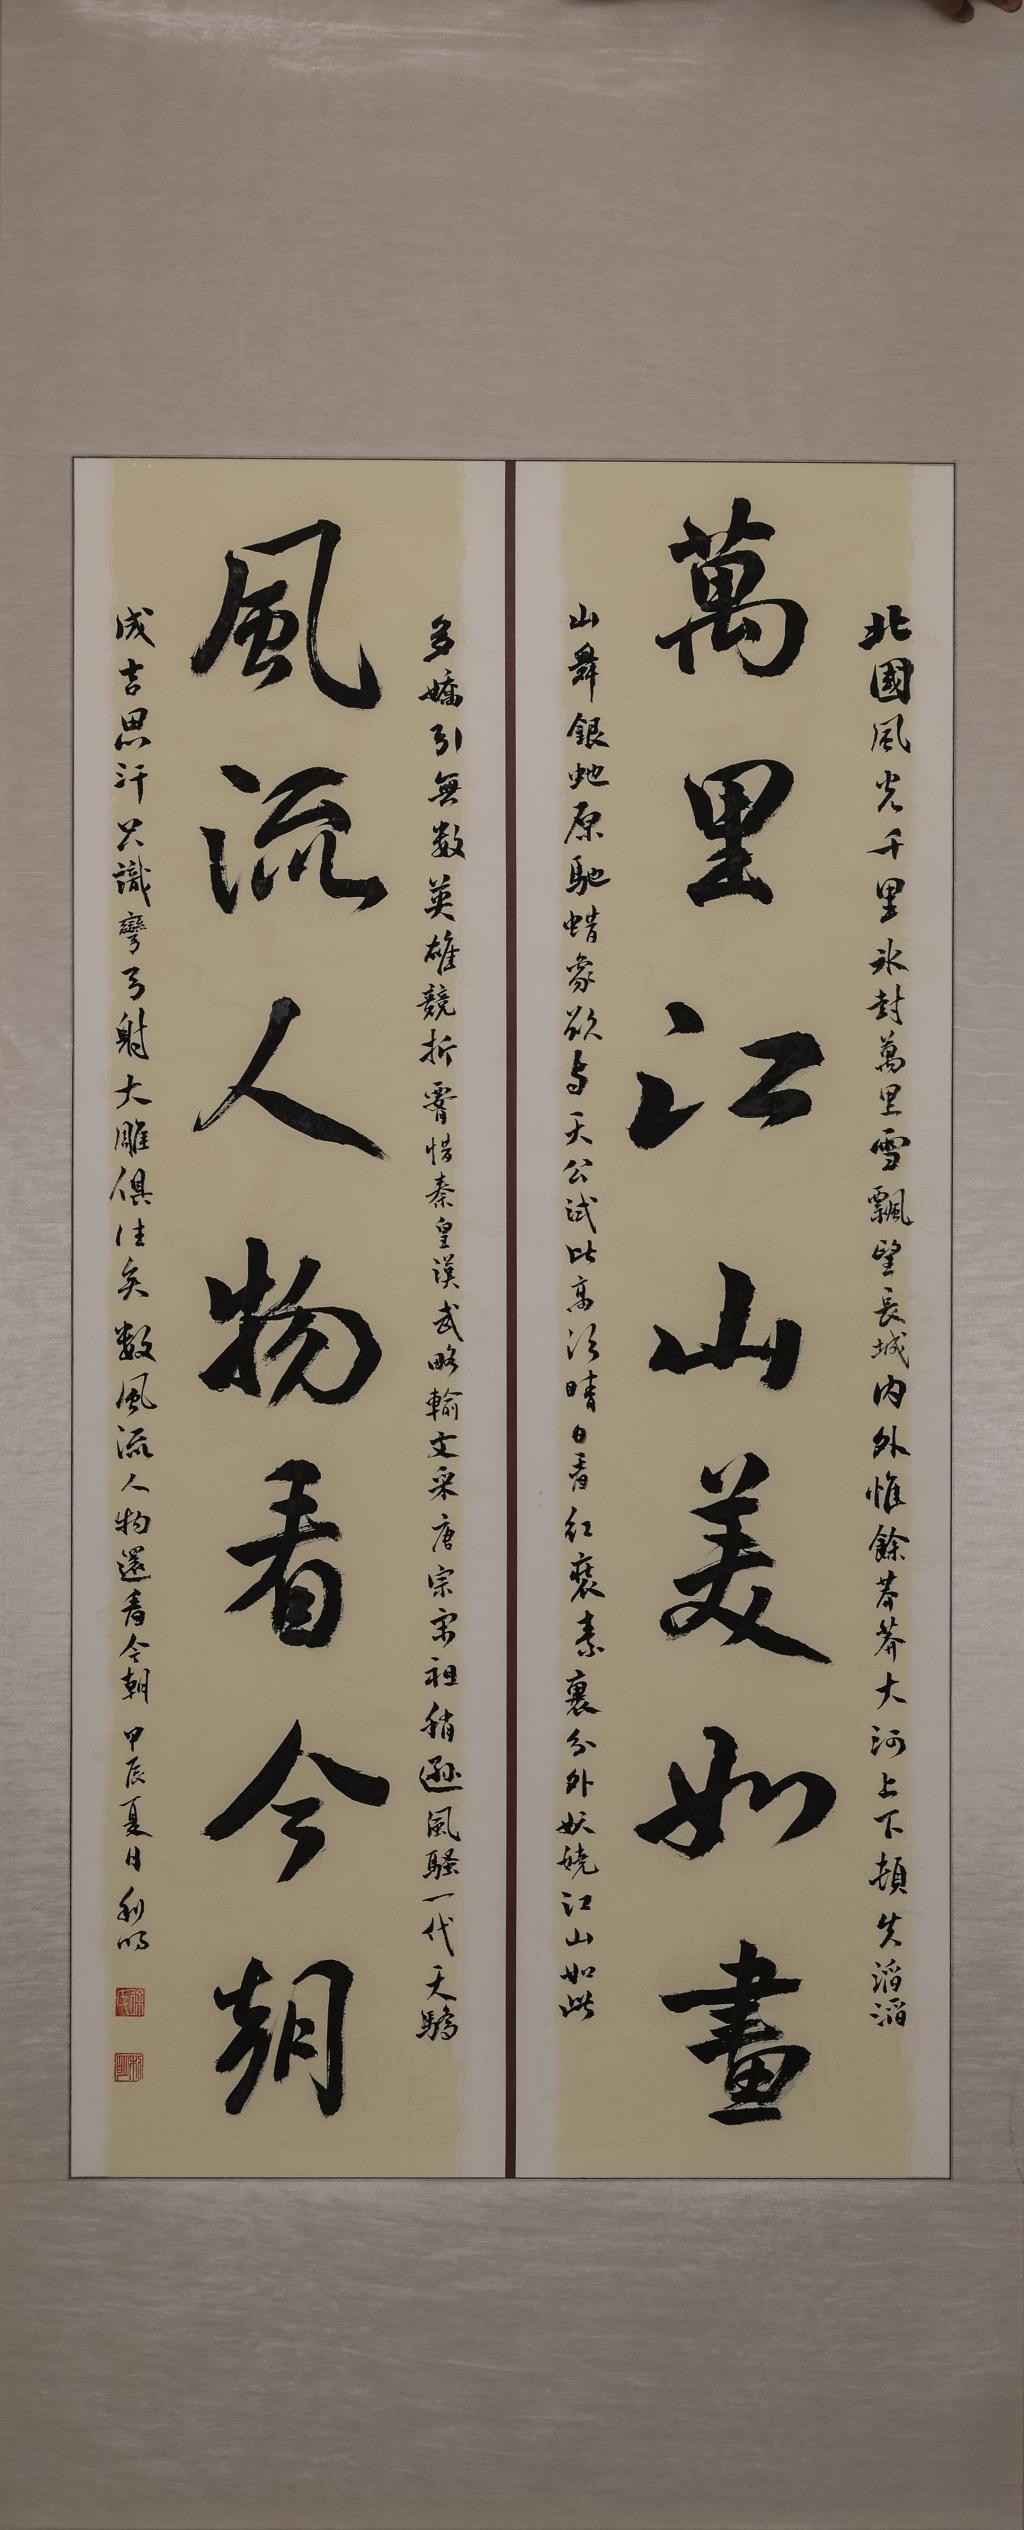 北國風光千里氷封萬里雪飄望長城内外惟餘莽莽大河上下頓失滔滔
萬里江山美如畫
山舞銀蛇原馳蜡象欲与天公試比高須晴日看红裝素裹分外妖嬈江山如此
多嬌引無数英雄競折腰惜秦皇漢武略輸文采唐宗宋祖稍遜風騷一代天驕
風流人物看今朝
成吉思汗只識彎弓射大雕俱往矣数風流人物還看今朝甲辰夏日利明